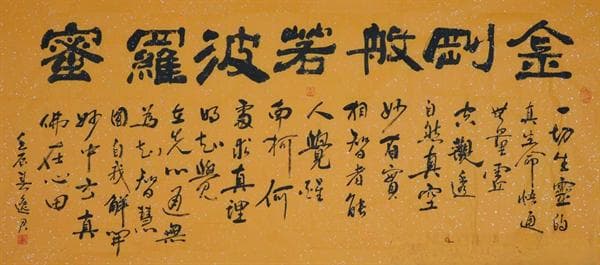 金剛般若波羅蜜
一切生靈的
真生命悟通
無量靈
觀透
自然真空
妙有實
相智者能
人覺
南柯何
處求真理
覺
先心通無
為智慧
圓自我解開
妙中真
佛在心田
壬辰